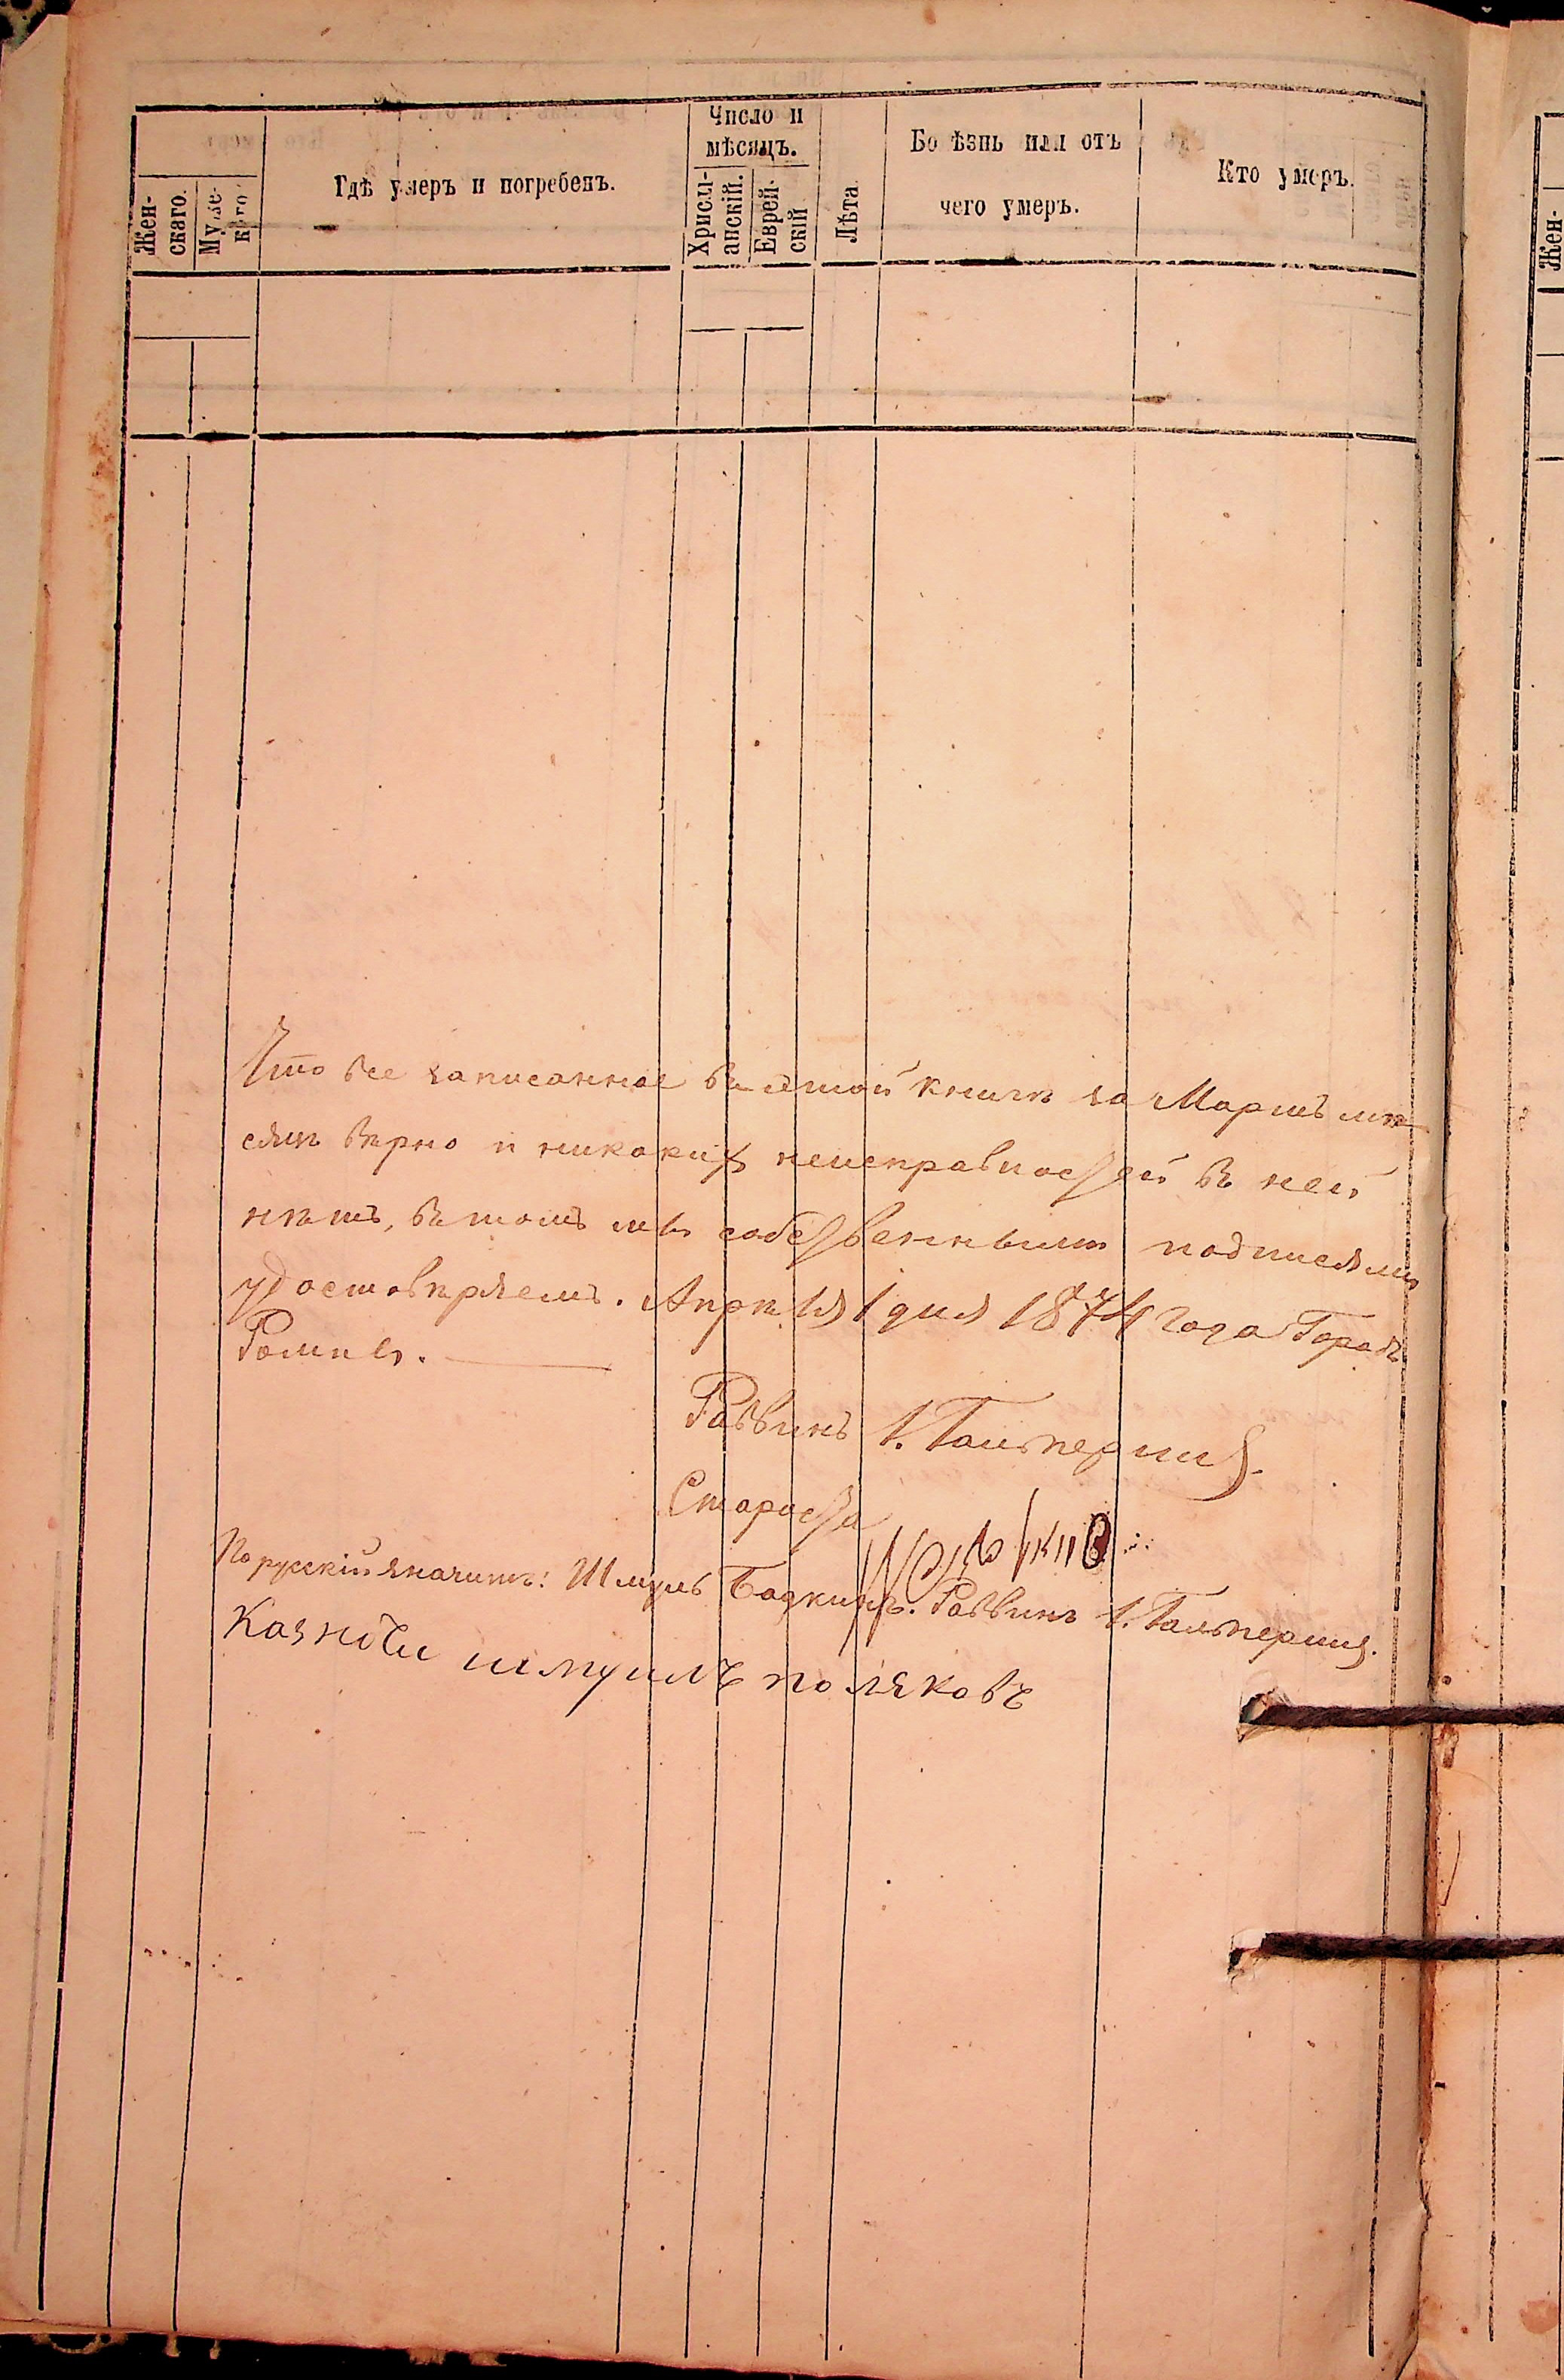 Жен-
скаго.
Муже-
каго
Гдѣ умеръ и погребенъ.
Число и
мѣсяцъ.
Христі-
анскій.
Еврей-
скій
Лѣта
Болѣзнь или отъ
чего умеръ.
Кто умеръ.
Жен-
Что все записанное въ этой книгѣ за Мартъ мѣ-
сяцъ вѣрно и никакихъ неисправностей въ ней
нѣтъ, въ томъ мы собственными подписями
удостовѣряемъ. Апрѣля 1 дня 1874 года Городъ
Ромны.
Раввинъ А. Гальперинъ.
Староста
По русскій значитъ: Шмуль Бадкинъ. Раввинъ А. Гальперинъ.
Казначи шмуилъ поляковъ